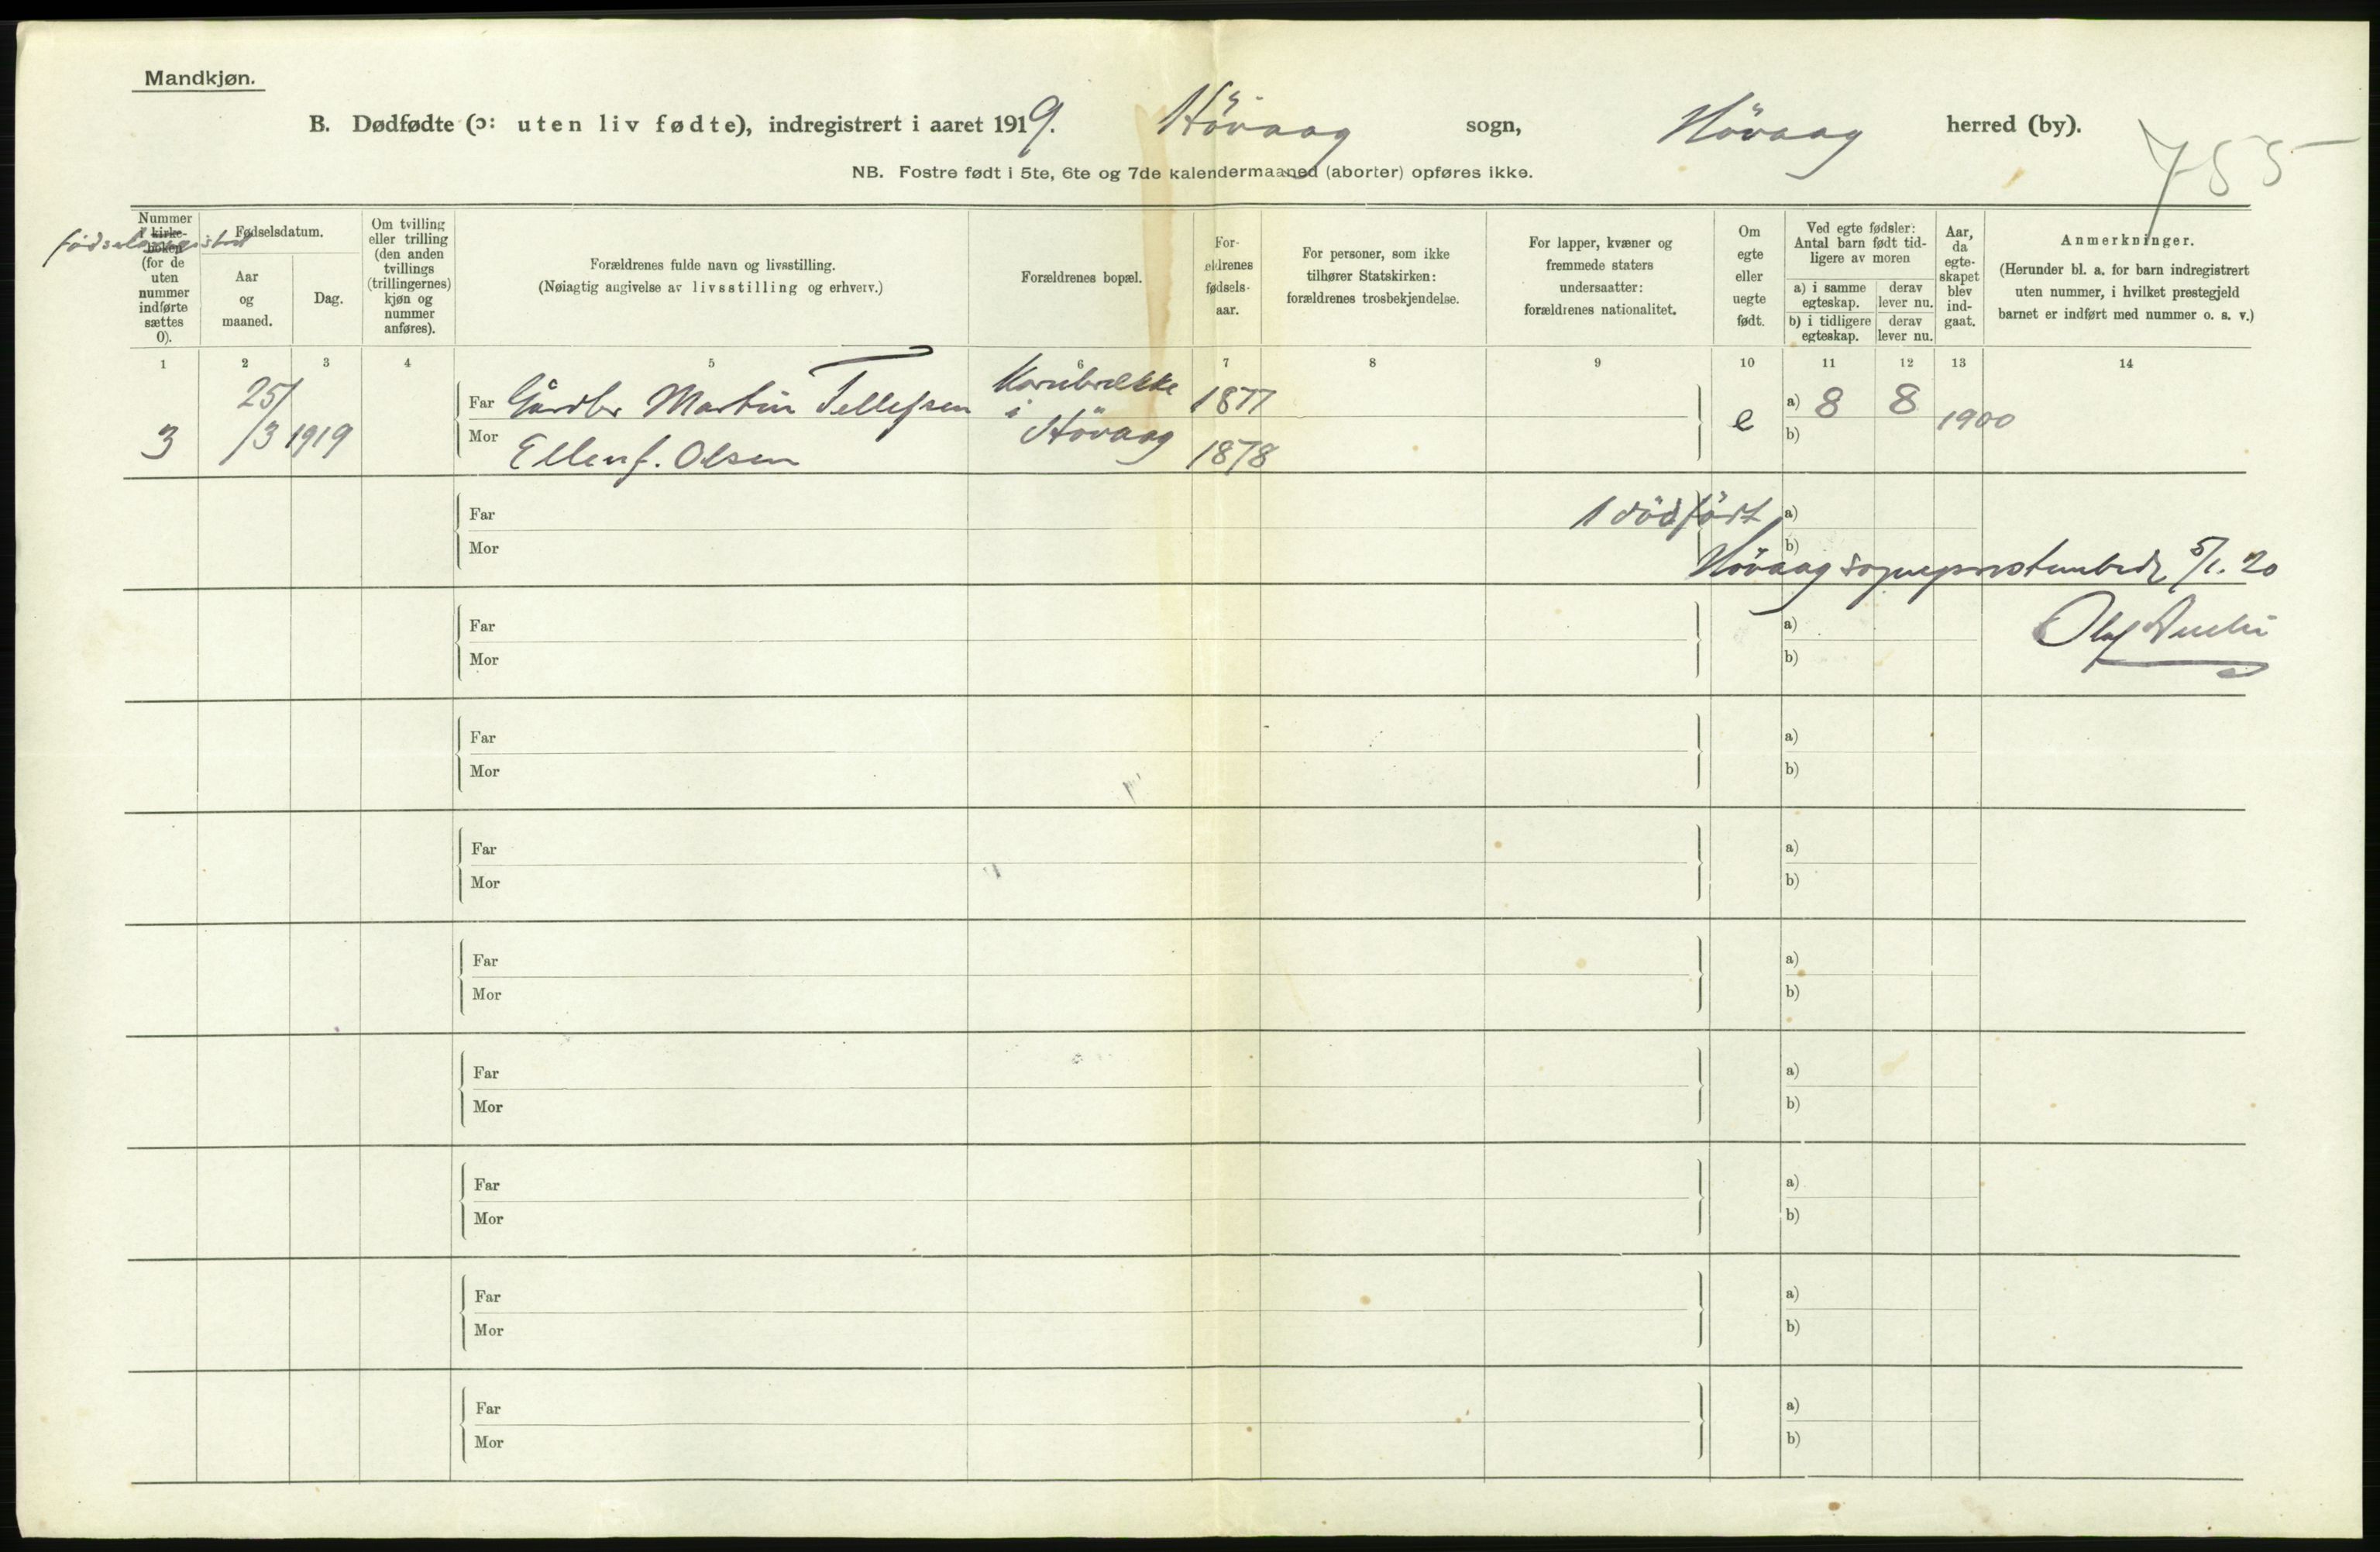 Mandkjøn.
B. Dødfødte (ɔ: uten liv fødte), indregistrert i aaret 1919. Høvaag sogn, Høvaag herred (by).
755
NB. Fostre født i 5te, 6te og 7de kalendermaaned (aborter) opføres ikke.
Nummer
i kirke-
boken
fødselsregistret
(for de
uten
nummer
indførte
sættes
0).
Fødselsdatum.
Aar
og
maaned.
Dag.
Om tvilling
eller trilling
(den anden
tvillings
(trillingernes)
kjøn og
nummer
anføres).
Forældrenes fulde navn og livsstilling.
(Nøiagtig angivelse av livsstilling og erhverv.)
Forældrenes bopæl.
For-
ældrenes
fødsels-
aar.
For personer, som ikke
tilhører Statskirken:
forældrenes trosbekjendelse.
For lapper, kvæner og
fremmede staters
undersaatter:
forældrenes nationalitet.
Om
egte
eller
uegte
født.
Ved egte fødsler:
Antal barn født tid-
ligere av moren
a) i samme
egteskap.
derav
lever nu.
b) i tidligere
egteskap.
derav
lever nu.
Aar,
da
egte-
skapet
blev
ind-
gaat.
Anmerkninger.
(Herunder bl. a. for barn indregistrert
uten nummer, i hvilket prestegjeld
barnet er indført med nummer o. s. v.)
1 2 3 4 5 6 7 8 9 10 11 12 13 14
3 25/3 1919
Far Gårdbr Martin Tellefsen 1877 a) 8 8
i Høvaag e 1900
Mor Ellen f. Olsen 1878 b)
Far 1 dödfödt a)
Mor b)
Høvaag sogneprestembede, 5/1. 20
Far a) Olaf
Mor b)
Far a)
Mor b)
Far a)
Mor b)
Far a)
Mor b)
Far a)
Mor b)
Far a)
Mor b)
Far a)
Mor b)
Far a)
Mor b)